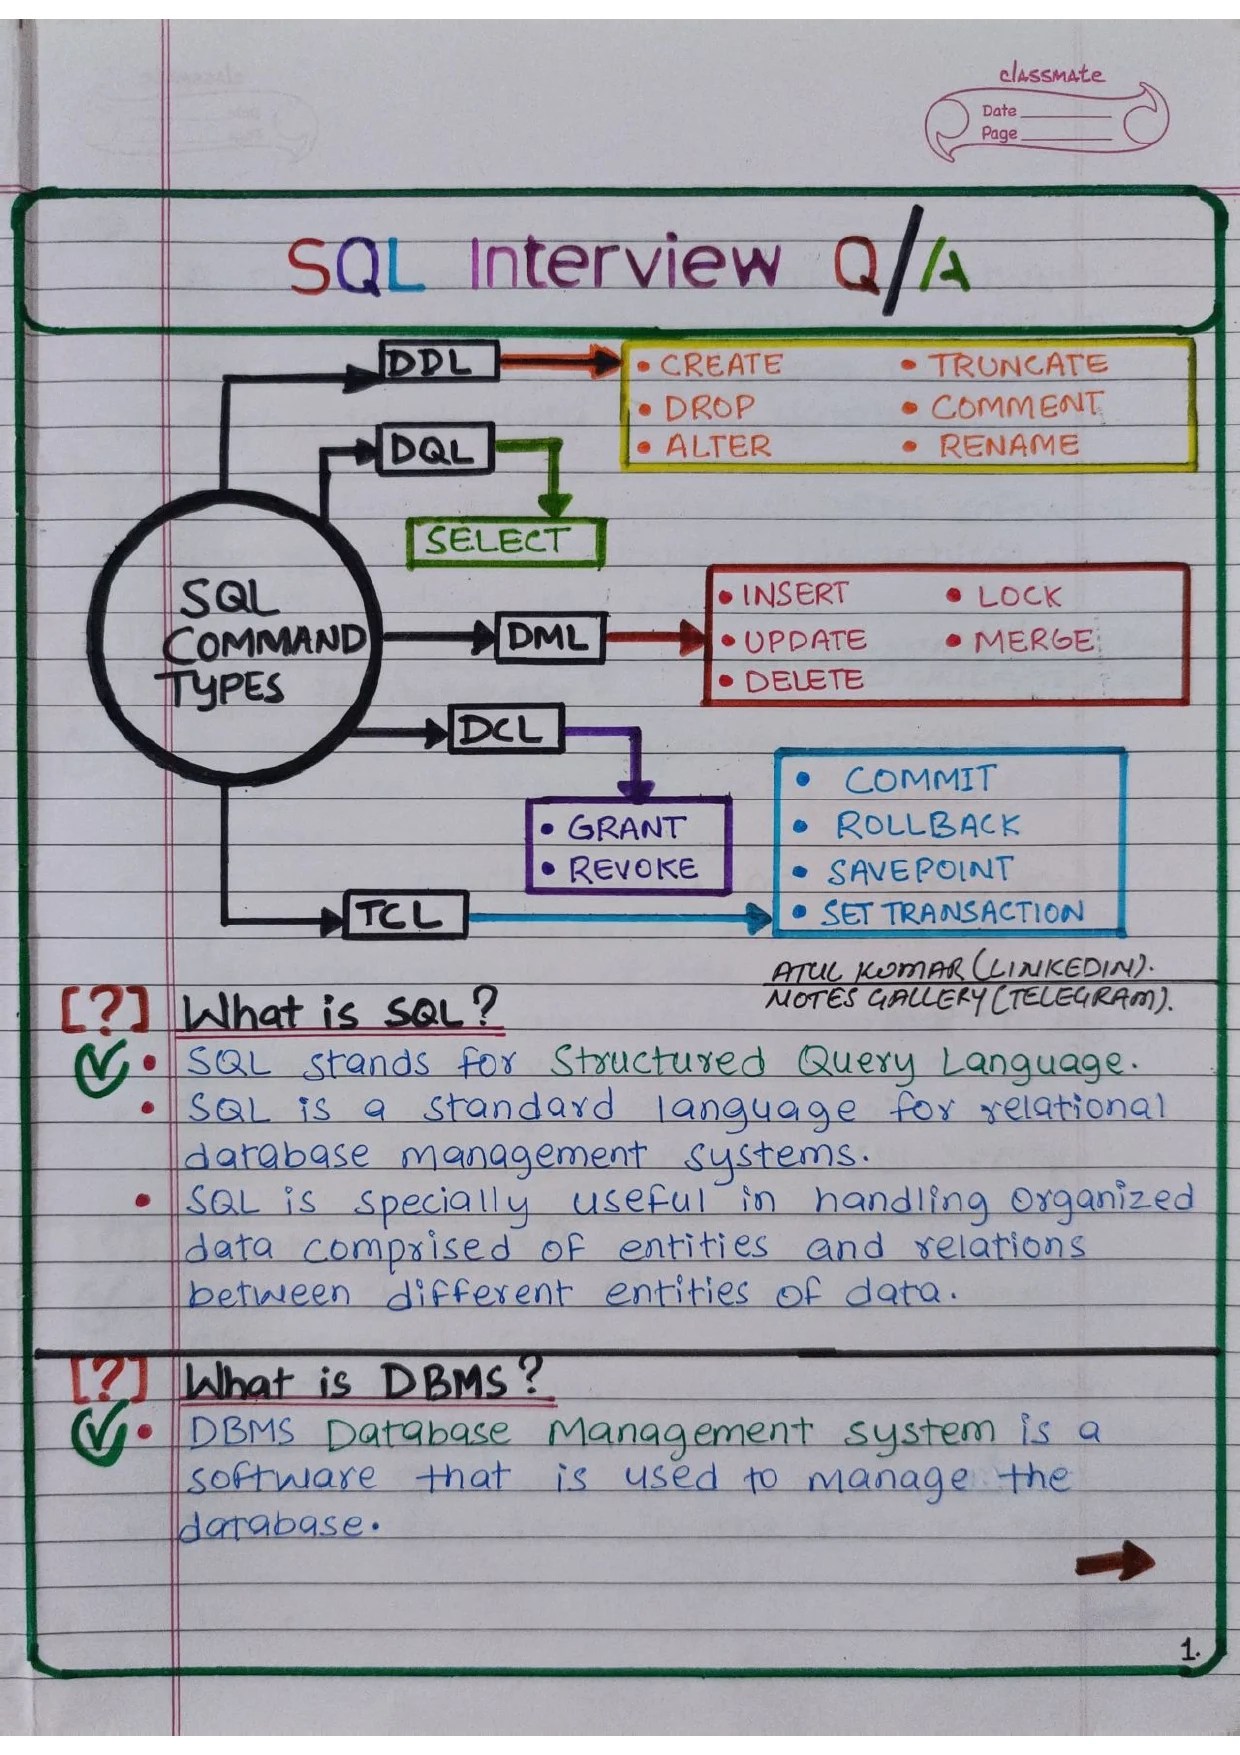 classmate
Date
Page
SQL Interview Q/A
DDL
• CREATE • TRUNCATE
• DROP • COMMENT
• ALTER • RENAME
DQL
SELECT
SQL
COMMAND
TYPES
DML
• INSERT • LOCK
• UPDATE • MERGE
• DELETE
DCL
• GRANT
• REVOKE
TCL
• COMMIT
• ROLLBACK
• SAVEPOINT
• SET TRANSACTION
ATUL KUMAR (LINKEDIN).
NOTES GALLERY (TELEGRAM).
[?] What is SQL?
• SQL stands for Structured Query Language.
• SQL is a standard language for relational
database management systems.
• SQL is specially useful in handling organized
data comprised of entities and relations
between different entities of data.
[?] What is DBMS?
• DBMS Database Management system is a
software that is used to manage the
database.
1.